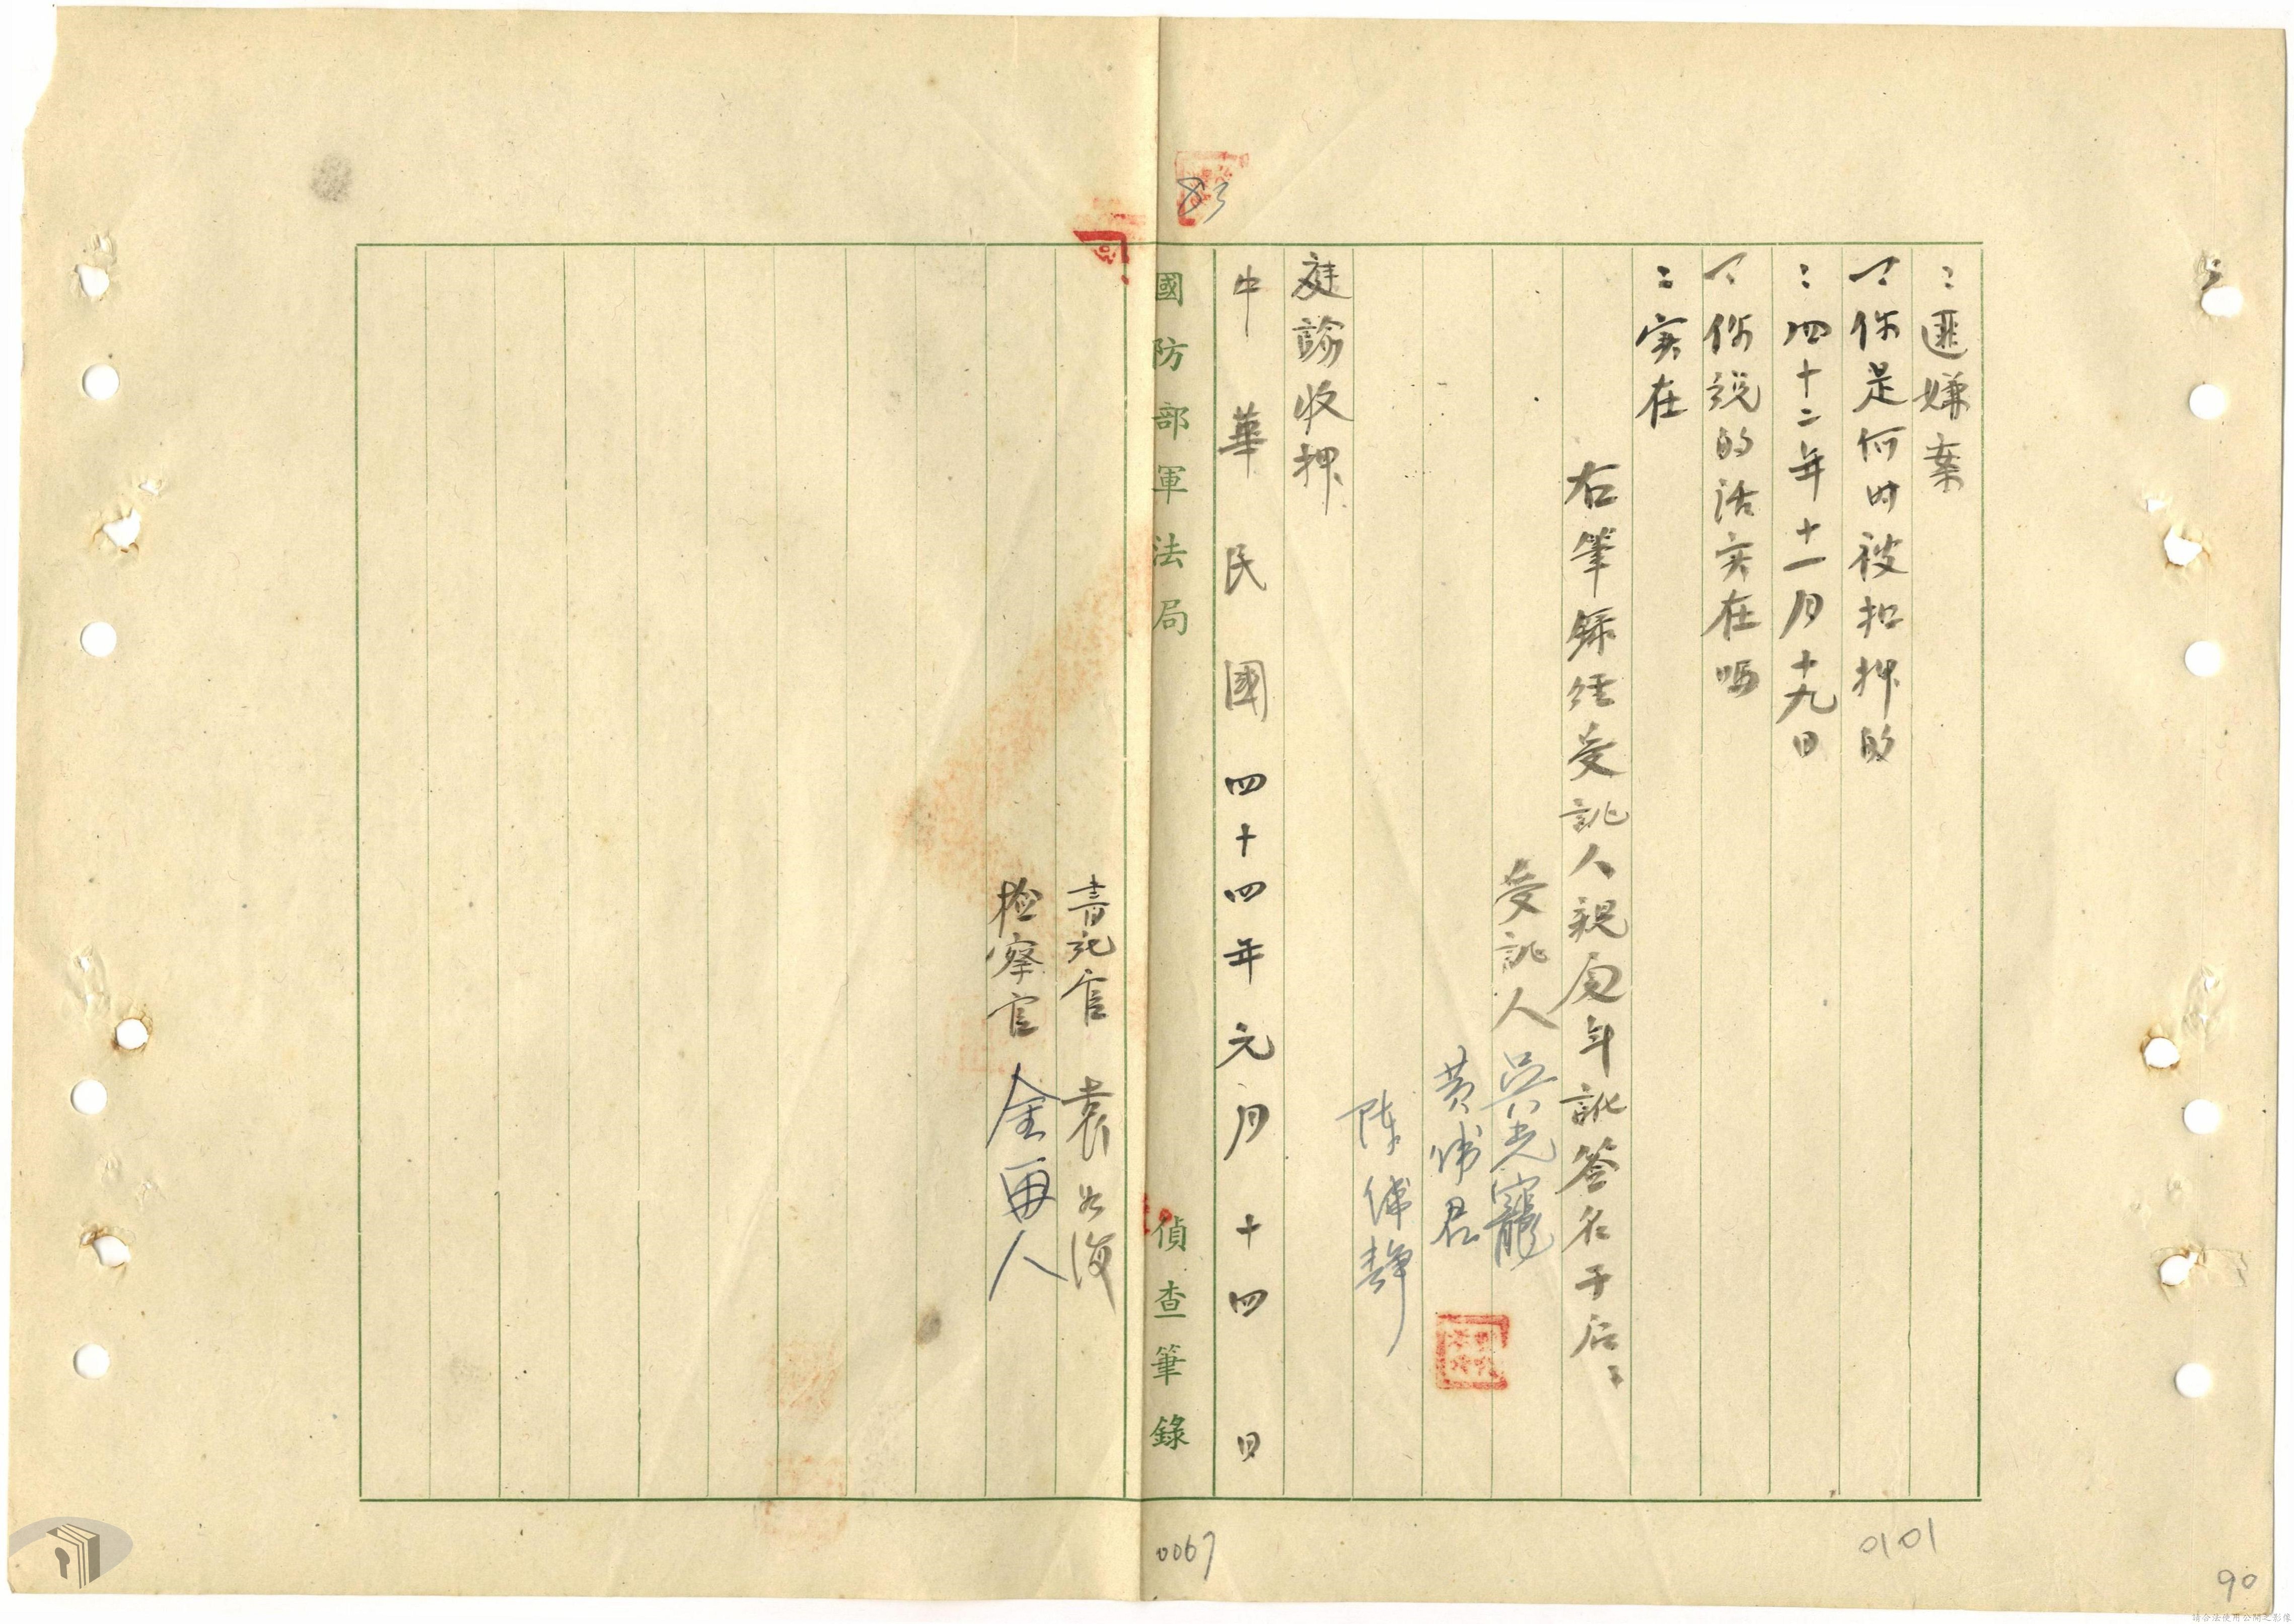 ：匪嫌案
？你是何时被扣押的
：四十二年十一月十九日
？你説的话实在吗
：实在
右筆錄经受訊人親閱無訛签名于后：
受訊人 吳光寵
黄佩君
陈佩靜
庭諭收押
中華民國四十四年元月十四日
國防部軍法局 偵查筆錄
書記官 袁
檢察官 金再人
83
0067
0101
90
請合法使用公開之影像